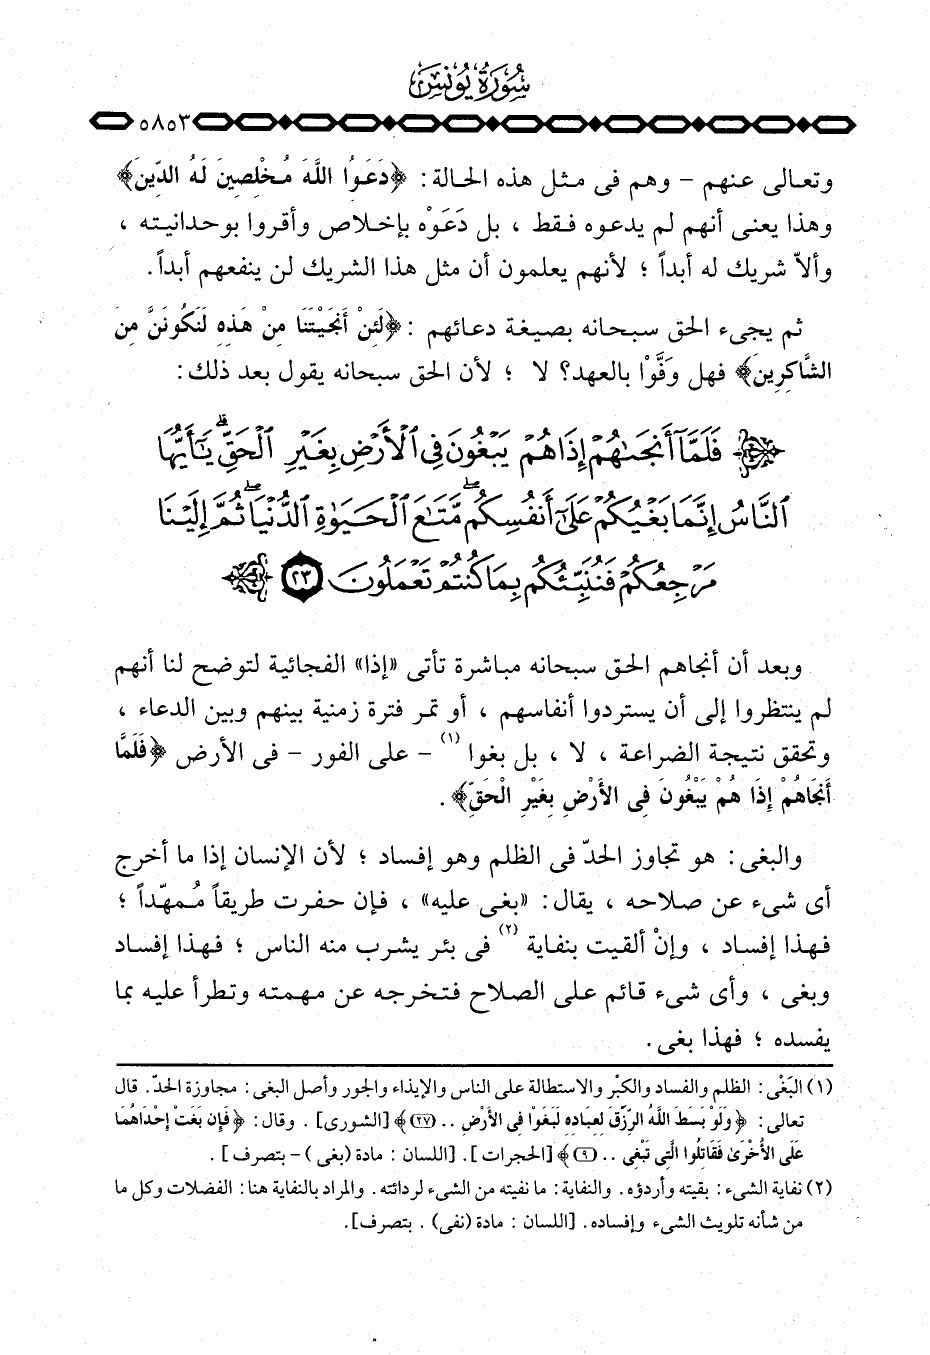 سُورَةُ يُونُسَ
٥٨٥٣
وتعالى عنهم – وهم فى مثل هذه الحالة: ﴿دَعَوُا اللَّهَ مُخْلِصِينَ لَهُ الدِّينَ﴾
وهذا يعنى أنهم لم يدعوه فقط ، بل دَعَوْه بإخلاص وأقروا بوحدانيته ،
وألاّ شريك له أبداً ؛ لأنهم يعلمون أن مثل هذا الشريك لن ينفعهم أبداً.
ثم يجىء الحق سبحانه بصيغة دعائهم : ﴿لَئِنْ أَنجَيْتَنَا مِنْ هَذِهِ لَنَكُونَنَّ مِنَ
الشَّاكِرِينَ﴾ فهل وَفَّوْا بالعهد؟ لا ؛ لأن الحق سبحانه يقول بعد ذلك:
﴿فَلَمَّآ أَنجَىٰهُمْ إِذَا هُمْ يَبْغُونَ فِى ٱلْأَرْضِ بِغَيْرِ ٱلْحَقِّ ۗ يَٰٓأَيُّهَا
ٱلنَّاسُ إِنَّمَا بَغْيُكُمْ عَلَىٰٓ أَنفُسِكُم ۖ مَّتَٰعَ ٱلْحَيَوٰةِ ٱلدُّنْيَا ۖ ثُمَّ إِلَيْنَا
مَرْجِعُكُمْ فَنُنَبِّئُكُم بِمَا كُنتُمْ تَعْمَلُونَ ٢٣﴾
وبعد أن أنجاهم الحق سبحانه مباشرة تأتى «إذا» الفجائية لتوضح لنا أنهم
لم ينتظروا إلى أن يستردوا أنفاسهم ، أو تمر فترة زمنية بينهم وبين الدعاء ،
وتحقق نتيجة الضراعة ، لا ، بل بغوا (١) – على الفور – فى الأرض ﴿فَلَمَّا
أَنجَاهُمْ إِذَا هُمْ يَبْغُونَ فِى الأَرْضِ بِغَيْرِ الْحَقِّ﴾.
والبغى: هو تجاوز الحدّ فى الظلم وهو إفساد ؛ لأن الإنسان إذا ما أخرج
أى شىء عن صلاحه ، يقال: «بغى عليه» ، فإن حفرت طريقاً مُمهّداً ؛
فهذا إفساد ، وإنْ ألقيت بنفاية (٢) فى بئر يشرب منه الناس ؛ فهذا إفساد
وبغى ، وأى شىء قائم على الصلاح فتخرجه عن مهمته وتطرأ عليه بما
يفسده ؛ فهذا بغى.
(١) البَغْى: الظلم والفساد والكِبْر والاستطالة على الناس والإيذاء والجور وأصل البغى: مجاوزة الحدّ. قال
تعالى: ﴿وَلَوْ بَسَطَ اللَّهُ الرِّزْقَ لِعِبَادِهِ لَبَغَوْا فِى الأَرْضِ .. (٢٧)﴾ [الشورى]. وقال: ﴿فَإِن بَغَتْ إِحْدَاهُمَا
عَلَى الأُخْرَىٰ فَقَاتِلُوا الَّتِى تَبْغِى .. (٩)﴾ [الحجرات]. [اللسان : مادة (بغى) – بتصرف].
(٢) نفاية الشىء: بقيته وأردؤه. والنفاية: ما نفيته من الشىء لردائته. والمراد بالنفاية هنا: الفضلات وكل ما
من شأنه تلويث الشىء وإفساده. [اللسان : مادة (نفى) . بتصرف].